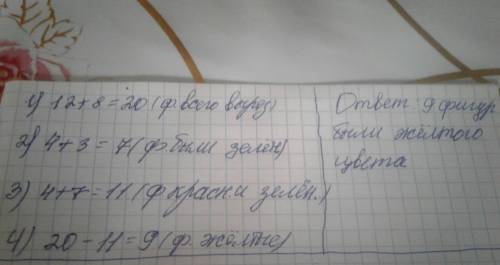 1) 12+8=20 (ф. всего вырез)
2) 4+3=7 (ф. были зелён)
3) 4+7=11 (ф. красн. и зелён.)
4) 20-11=9 (ф. жёлтые)
Ответ: 9 фигур
были жёлтого
цвета